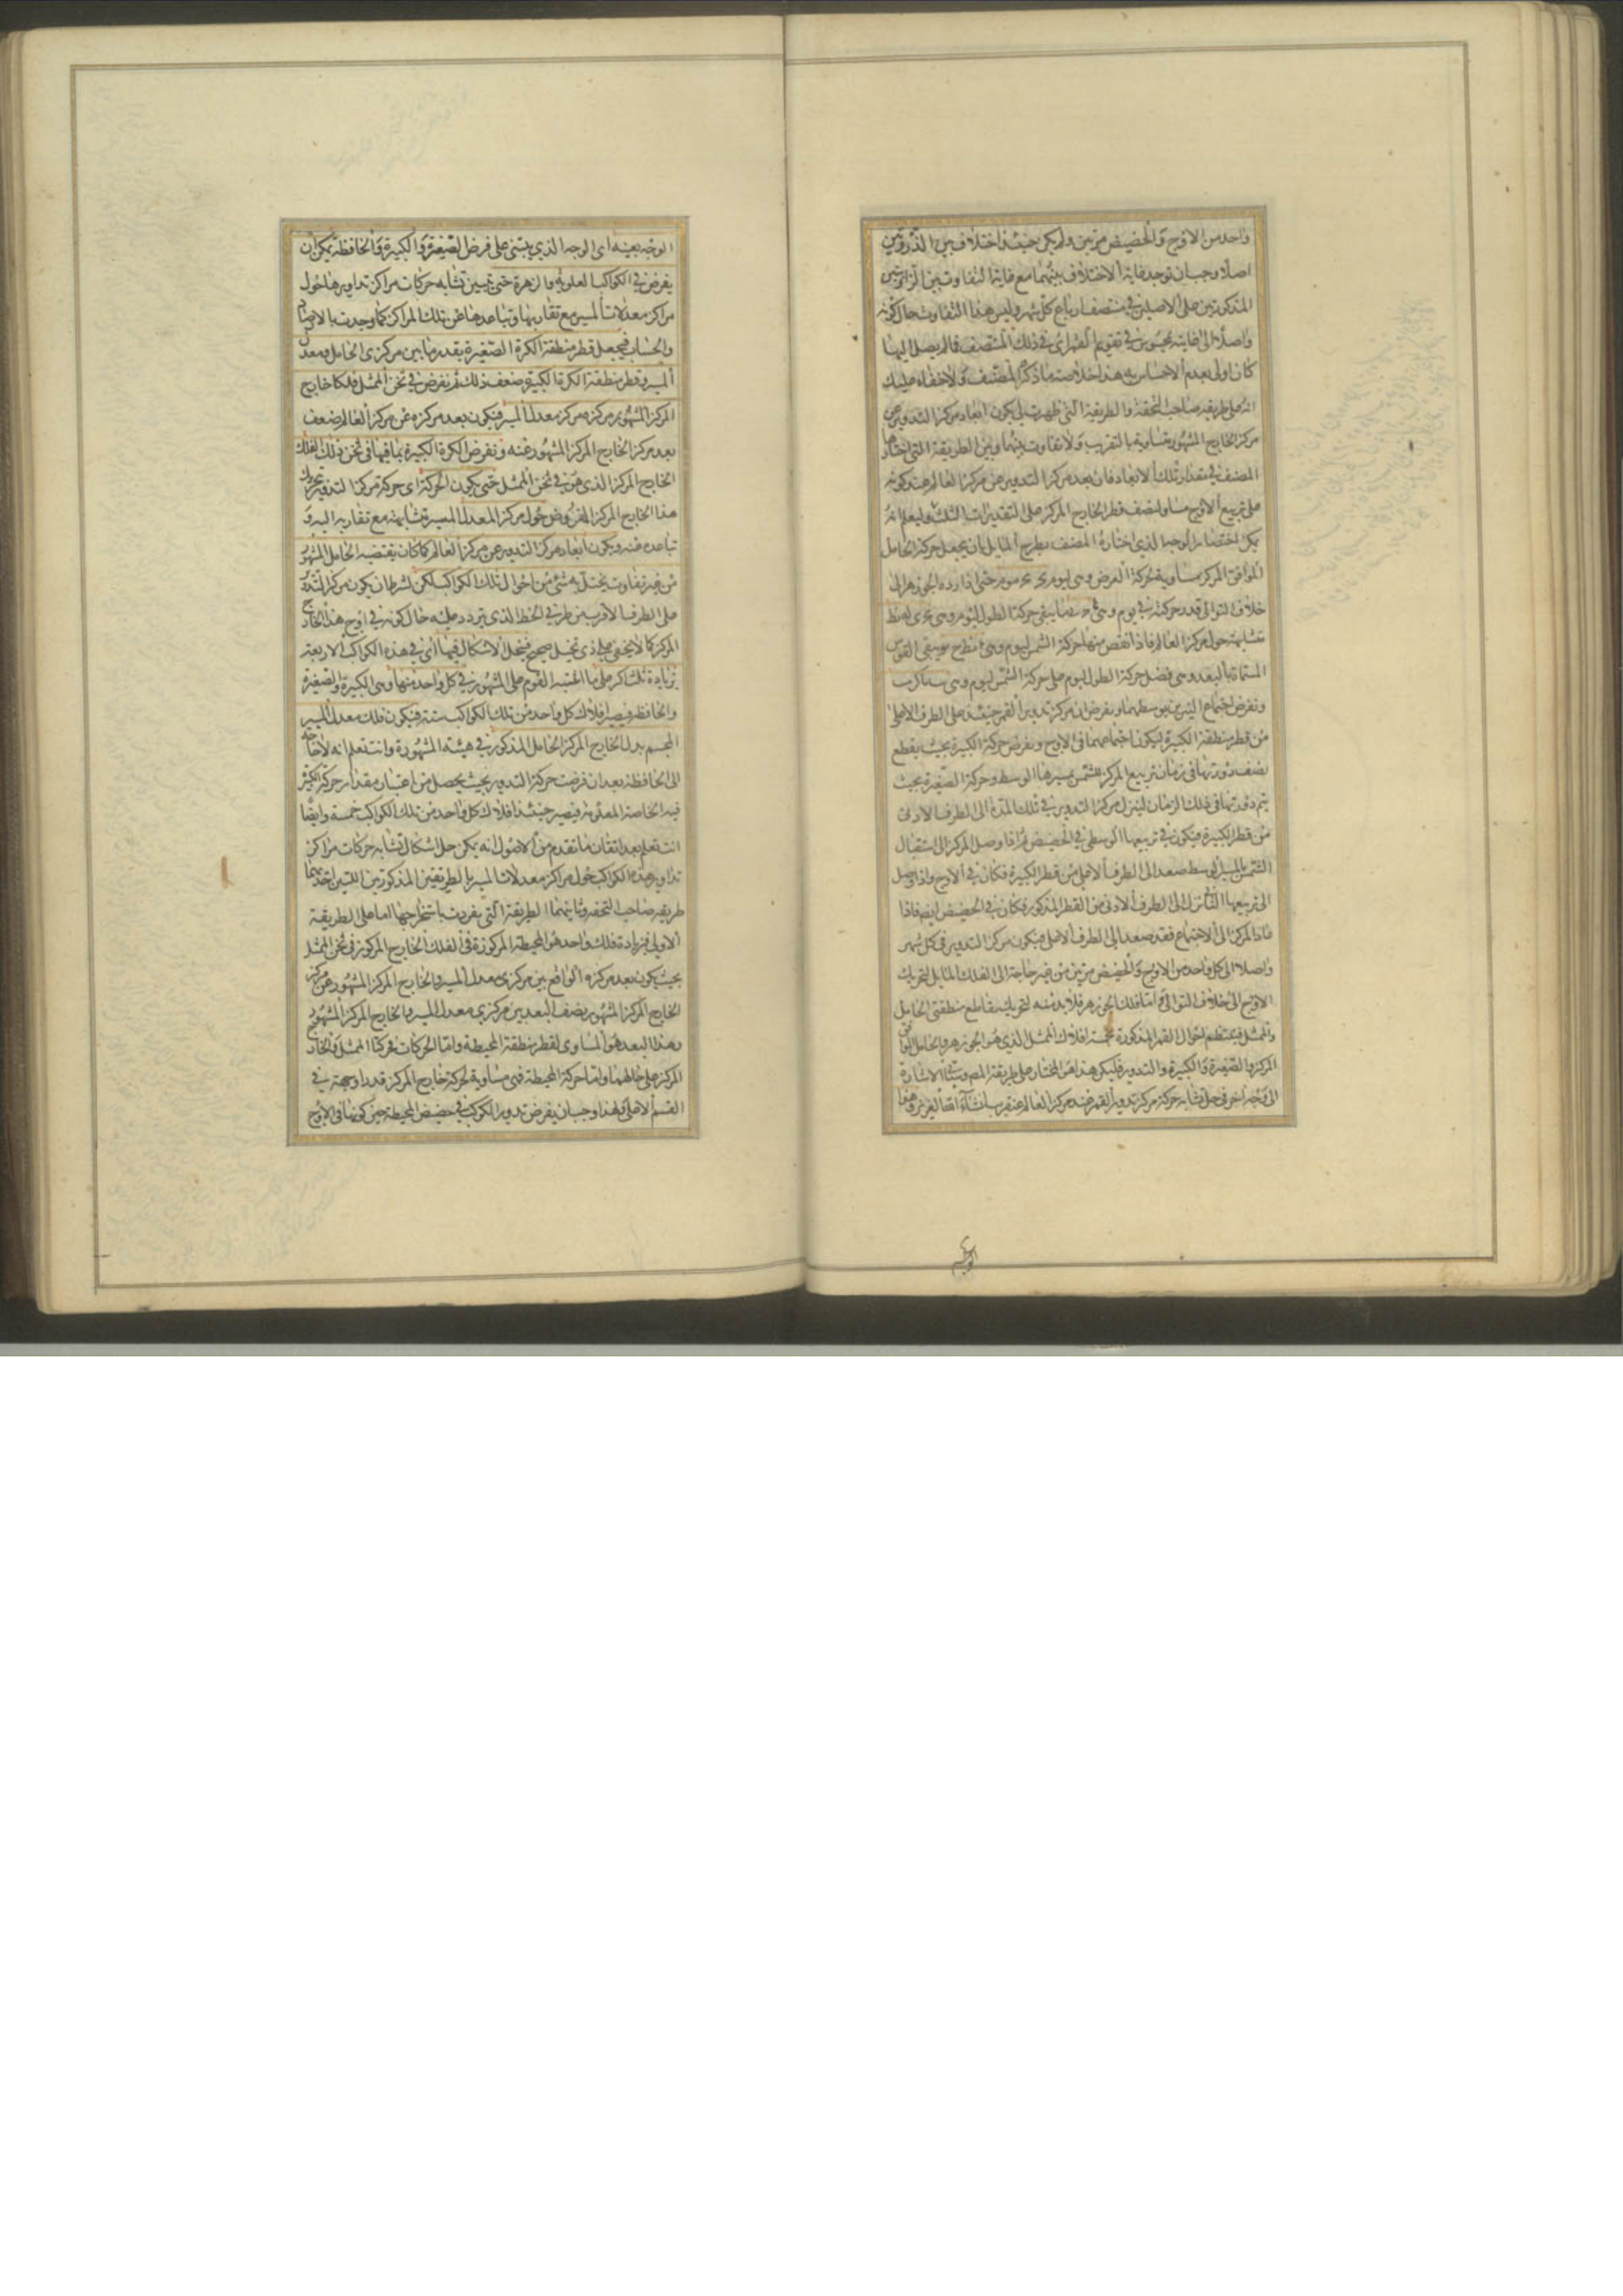 واحد من الاوج والحضيض مرتين ولم يكن حينئذ اختلاف بين الذروتين
اصلا وجب ان توجد غاية الاختلاف بينهما مع غاية التفاوت بين الزاويتين
المذكورتين على الاصلين في منتصف ارباع كل شهر وليس هذا التفاوت حال كونه
واصلا الى غايته بمحسوس في تقويم القمر اي في ذلك المنتصف فما لم يصل اليها
كان اولى بعدم الاحساس به هذا خلاصة ما ذكره المصنف ولا خفاء عليك
انه على طريقة صاحب التحفة والطريقة التي ظهرت لي يكون ابعاد مركز التدوير عن
مركز الخارج المشهور متساوية بالتقريب ولا تفاوت بينهما وبين الطريقة التي اختارها
المصنف في مقدار تلك الابعاد فان بعد مركز التدوير عن مركز العالم عند كونه
على تربيع الاوج مساو لنصف قطر الخارج المركز على التقديرات الثلث وليعلم انه
يمكن اختصار الوجه الذي اختاره المصنف بطرح المايل بان يجعل حركة الحامل
الموافق المركز مساوية لحركة العرض وهي ليوم حتى اذا رده الجوزهر الى
خلاف التوالي قدر حركته في يوم وهي يبقى حركة الطول اليوم وهي
متشابهة حول مركز العالم فاذا نقص منها حركة الشمس ليوم وهي يبقى القوس
المسماة بالبعد وهي فضل حركة الطول ليوم على حركة الشمس ليوم وهي
ونفرض اجتماع النيرين بوسطهما ونفرض ان مركز تدوير القمر حينئذ على الطرف الاعلى
من قطر منطقة الكبيرة ليكون اجتماعهما في الاوج ونفرض حركة الكبيرة بحيث يقطع
نصف دورتها في زمان تربيع المركز للشمس بسيرها الوسط وحركة الصغيرة بحيث
يتم دورتها في ذلك الزمان لينزل مركز التدوير في تلك المدة الى الطرف الادنى
من قطر الكبيرة فيكون في تربيعها الوسطى في الحضيض ثم اذا وصل المركز الى استقبال
الشمس بالمسير الوسط صعد الى الطرف الاعلى من قطر الكبيرة فكان في الاوج واذا وصل
الى تربيعها الثاني نزل الى الطرف الادنى من القطر المذكور فكان في الحضيض ايضا فاذا
عاد المركز الى الاجتماع فقد صعد الى الطرف الاعلى فيكون مركز التدوير في كل شهر
واصلا الى كل واحد من الاوج والحضيض مرتين من غير حاجة الى الفلك المايل لتحريك
الاوج الى خلاف التوالي واما فلك الجوزهر فلا بد منه لتحريك تقاطع منطقتي الحامل
والممثل فينتظم احوال القمر المذكورة بخمسة افلاك الممثل الذي هو الجوزهر والحامل الموافق
المركز والصغيرة والكبيرة والتدوير فليكن هذا هو المختار على طريقة المص وستأتي الاشارة
الى وجه اخر في حل تشابه حركة مركز تدوير القمر عند مركز العالم عنقريب انشاء الله العزيز وهذا
الوجه
الوجه بعينه اي الوجه الذي يبتنى على فرض الصغيرة والكبيرة والحافظة يمكن ان
يفرض في الكواكب العلوية والزهرة حتى تبين تشابه حركات مراكز تداويرها حول
مراكز معدلات المسير مع تقاربها وتباعدها عن تلك المراكز كما وجدت بالارصاد
والحساب فيجعل قطر منطقة الكرة الصغيرة بقدر ما بين مركزي الحامل ومعدل
المسير وقطر منطقة الكرة الكبيرة ضعف ذلك ثم نفرض في ثخن الممثل فلكا خارج
المركز المشهور مركزه مركز معدل المسير فيكون بعد مركزه عن مركز العالم ضعف
بعد مركز الخارج المركز المشهور عنه ونفرض الكرة الكبيرة بما فيها في ثخن ذلك الفلك
الخارج المركز الذي هو في ثخن الممثل حتى يكون الحركة اي حركة مركز التدوير بتحريك
هذا الخارج المركز المفروض حول مركز المعدل المسير متشابهة مع تقاربه اليه و
تباعده عنه ويكون ابعاد مركز التدوير عن مركز العالم كما كان يقتضيه الحامل المشهور
من غير تفاوت يختل به شئ من احوال تلك الكواكب لكن لشرط ان يكون مركز التدوير
على الطرف الاقرب من طرفي الخط الذي يتردد عليه حال كونه في اوج هذا الخارج
المركز كما لا يخفى على ذي تخيل صحيح فينحل الاشكال فيها اي في هذه الكواكب الاربعة
بزيادة ثلث اكر على ما اعتبره القوم على المشهور في كل واحد منها وهي الكبيرة والصغيرة
والحافظة فيصير افلاك كل واحد من تلك الكواكب ستة فيكون فلك معدل المسير
المجسم بدل الخارج المركز الحامل المذكور في هيئته المشهورة وانت تعلم انه لا حاجة
الى الحافظة بعد ان فرضت حركة التدوير بحيث يحصل من اعتبار مقدار حركة الكبيرة
فيه الخاصة المعلومة فيصير حينئذ افلاك كل واحد من تلك الكواكب خمسة وايضا
انت تعلم بعد اتقان ما تقدم من الاصول انه يمكن حل اشكال تشابه حركات مراكز
تداوير هذه الكواكب حول مراكز معدلات المسير بالطريقين المذكورين اللتين احديهما
طريقة صاحب التحفة وثانيتهما الطريقة التي تفردت باستخراجها اما على الطريقة
الاولى فبزيادة فلك واحد هو المحيطة المركوزة في الفلك الخارج المركوز في ثخن الممثل
بحيث يكون بعد مركزه الواقع بين مركزي معدل المسير والخارج المركز المشهور عن مركز
الخارج المركز المشهور نصف البعد بين مركزي معدل المسير والخارج المركز المشهور
وهذا البعد هو المساوي لقطر منطقة المحيطة واما الحركات فحركتا الممثل والخارج
المركز على حالهما واما حركة المحيطة فهي مساوية لحركة خارج المركز قدرا وجهة في
القسم الاعلى ولهذا وجب ان يفرض تدوير الكوكب في حضيض المحيطة حين كونها في الاوج